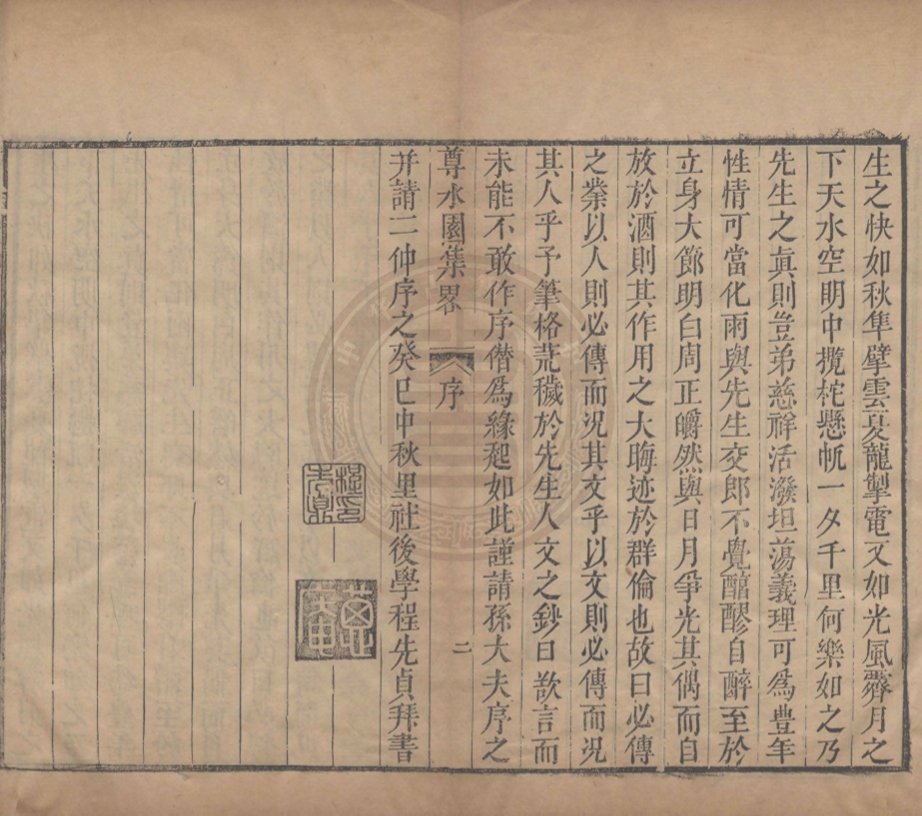 生之快如秋隼擘雲夏龍掣電又如光風霽月之
下天水空明中攬柁懸帆一夕千里何樂如之乃
先生之眞則豈弟慈祥活潑坦蕩義理可爲豊年
性情可當化雨與先生交郎不覺醇醪自醉至於
立身大節明白周正皭然與日月爭光其偶而自
放於酒則其作用之大晦迹於群倫也故曰必傳
之業以人則必傳而況其文乎以文則必傳而況
其人乎予筆格荒穢於先生人文之鈔曰欲言而
未能不敢作序僣爲緣起如此謹請孫大夫序之
尊水園集畧 序 二
并請二仲序之癸巳中秋里社後學程先貞拜書